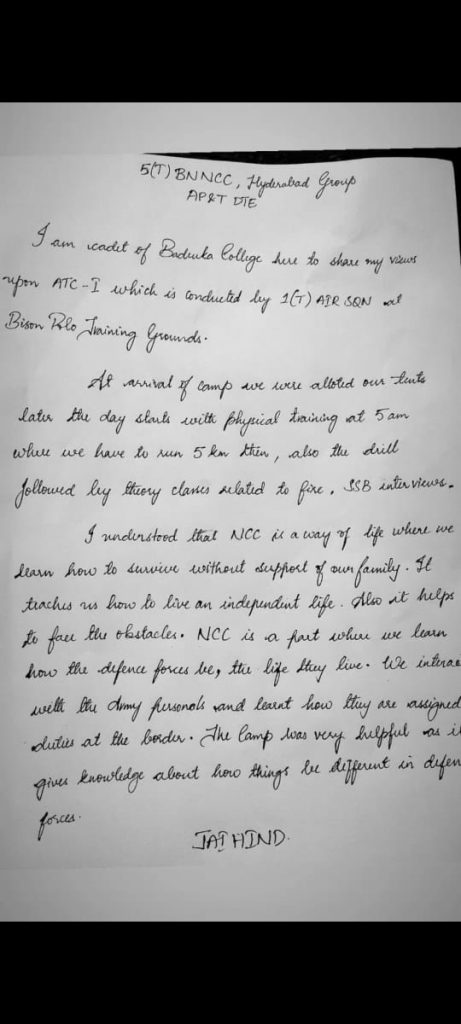 5(T) BN NCC, Hyderabad Group
AP&T DTE
I am cadet of Badruka College here to share my views
upon ATC-I which is conducted by 1(T) AIR SQN at
Bison Polo Training Grounds.
At arrival of camp we were alloted our tents
later the day starts with physical training at 5 am
where we have to run 5 km then, also the drill
followed by theory classes related to fire, SSB interviews.
I understood that NCC is a way of life where we
learn how to survive without support of our family. It
teaches us how to live an independent life. Also it helps
to face the obstacles. NCC is a part where we learn
how the defence forces be, the life they live. We interac
with the Army personals and learnt how they are assigned
duties at the border. The Camp was very helpful as it
gives knowledge about how things be different in defen
forces.
JAI HIND.